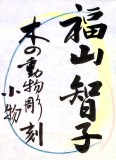 福山 智子
木の動物彫刻
小物